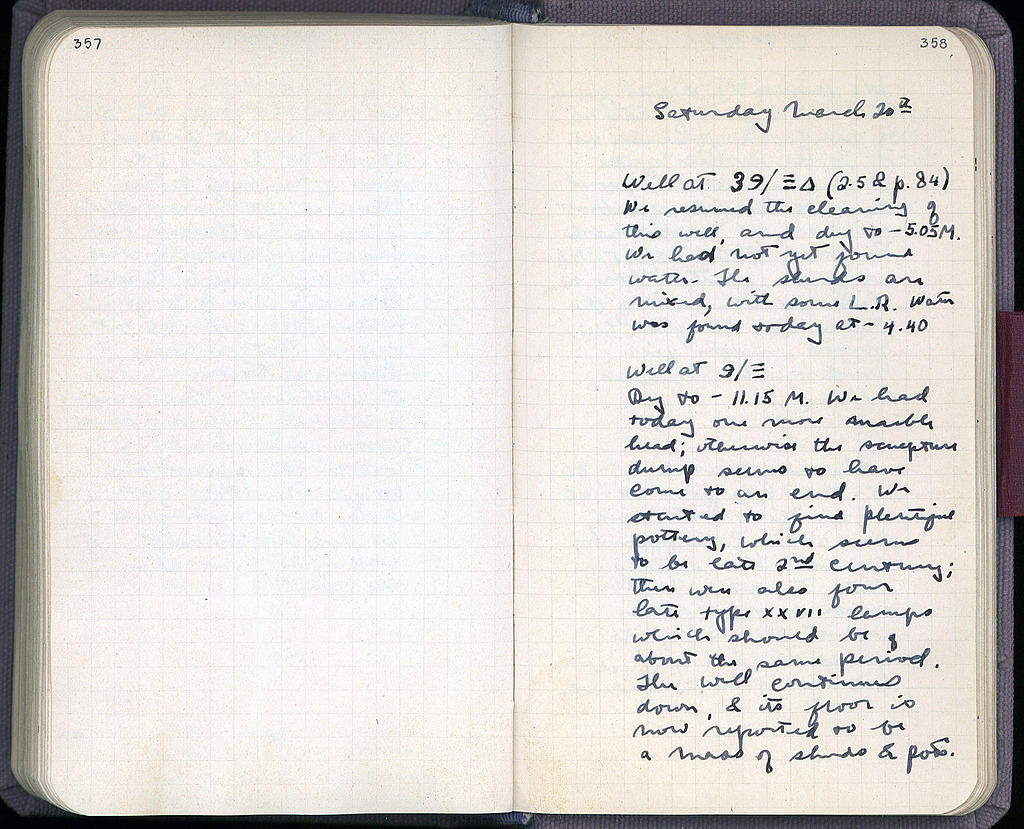 357
358
Saturday March 20th
Well at 39/ΞΔ (2.5 & p. 84)
We resumed the cleaning of
this well, and dug to -5.05M.
We had not yet found
water. The sherds are
mixed, with some L.R. Water
was found today at -4.40
Well at 9/Ξ
Dug to -11.15 M. We had
today one more marble
head; otherwise the sculpture
dump seems to have
come to an end. We
started to find plentiful
pottery, which seems
to be late 2nd century;
there were also four
late type XXVII lamps
which should be of
about the same period.
The well continues
down, & its floor is
now reported to be
a mass of sherds & pots.